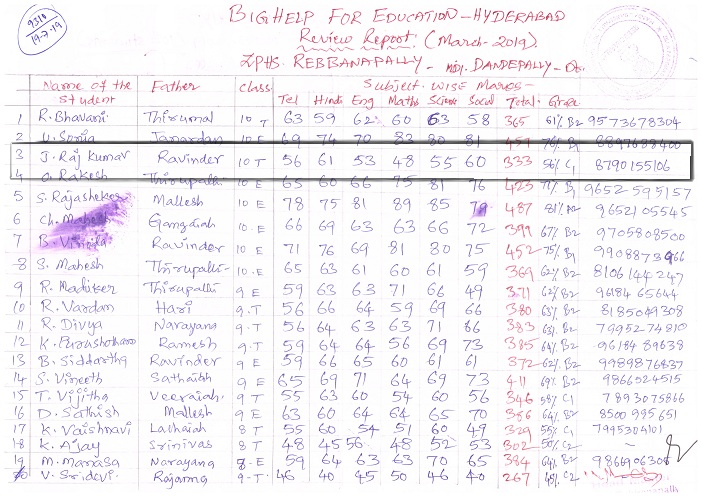 9310
19-7-19
BIGHELP FOR EDUCATION - HYDERABAD
Review Report. (March-2019)
ZPHS. REBBANAPALLY - DANDEPALLY -
Name of the Student Father class Subject Wise Marks -
Tel Hindi Eng Maths Science Social Total Grade
1 R. Bhavani Thirumal 10 T 63 59 62 60 63 58 365 61% B2 9573678304
2 Janardan 10 E 69 74 70 83 80 81 76%
3 J. Raj Kumar Ravinder 10 T 56 61 53 48 55 60 333 56% C1 8790155106
4 Rakesh Thirupathi 10 E 65 60 66 75 81 76 423 71% 9652595157
5 S. Rajasheker Mallesh 10 E 78 75 81 89 85 79 487 81% 9652105545
6 Ch. Mahesh Gangaiah 10 E 66 69 63 63 66 72 399 67% B2 9705808500
7 B. Ravinder 10 E 71 76 69 81 80 75 452 75% B1
8 S. Mahesh Thirupathi 10 E 65 63 61 60 61 59 369 62% B2 8106144247
9 R. Thirupathi 9 E 59 63 63 71 66 49 371 62% B2 9618465644
10 R. Vardan Hari 9 T 56 66 64 59 69 66 380 63% B2 8185049308
11 R. Divya Narayana 9 T 56 64 63 63 71 86 383 63% B2 7995274810
12 K. Purushotham Ramesh 9 T 59 64 64 56 69 73 385 64% B2 9618489638
13 B. Siddartha Ravinder 9 E 59 66 65 60 61 61 372 62% B2 9989876837
14 S. Vineeth Sathaiah 9 E 65 69 71 64 69 73 411 69% B2 9866024515
15 T. Vijitha Veeraiah 9 T 55 63 60 54 60 56 346 58% C1 7893075866
16 D. Sathish Mallesh 9 E 63 60 64 64 65 70 386 64% B2 8500995651
17 K. Vaishnavi Lachaiah 8 T 55 60 54 51 60 49 329 55% C1 7995304101
18 K. Ajay Srinivas 8 T 48 45 56 48 52 53 302 50% C2 -
19 M. Manasa Narayana 8 E 59 64 63 63 70 65 384 64% B2 9866906308
20 V. Sridevi Rajanna 9 T 46 40 45 50 46 40 267 45% C2